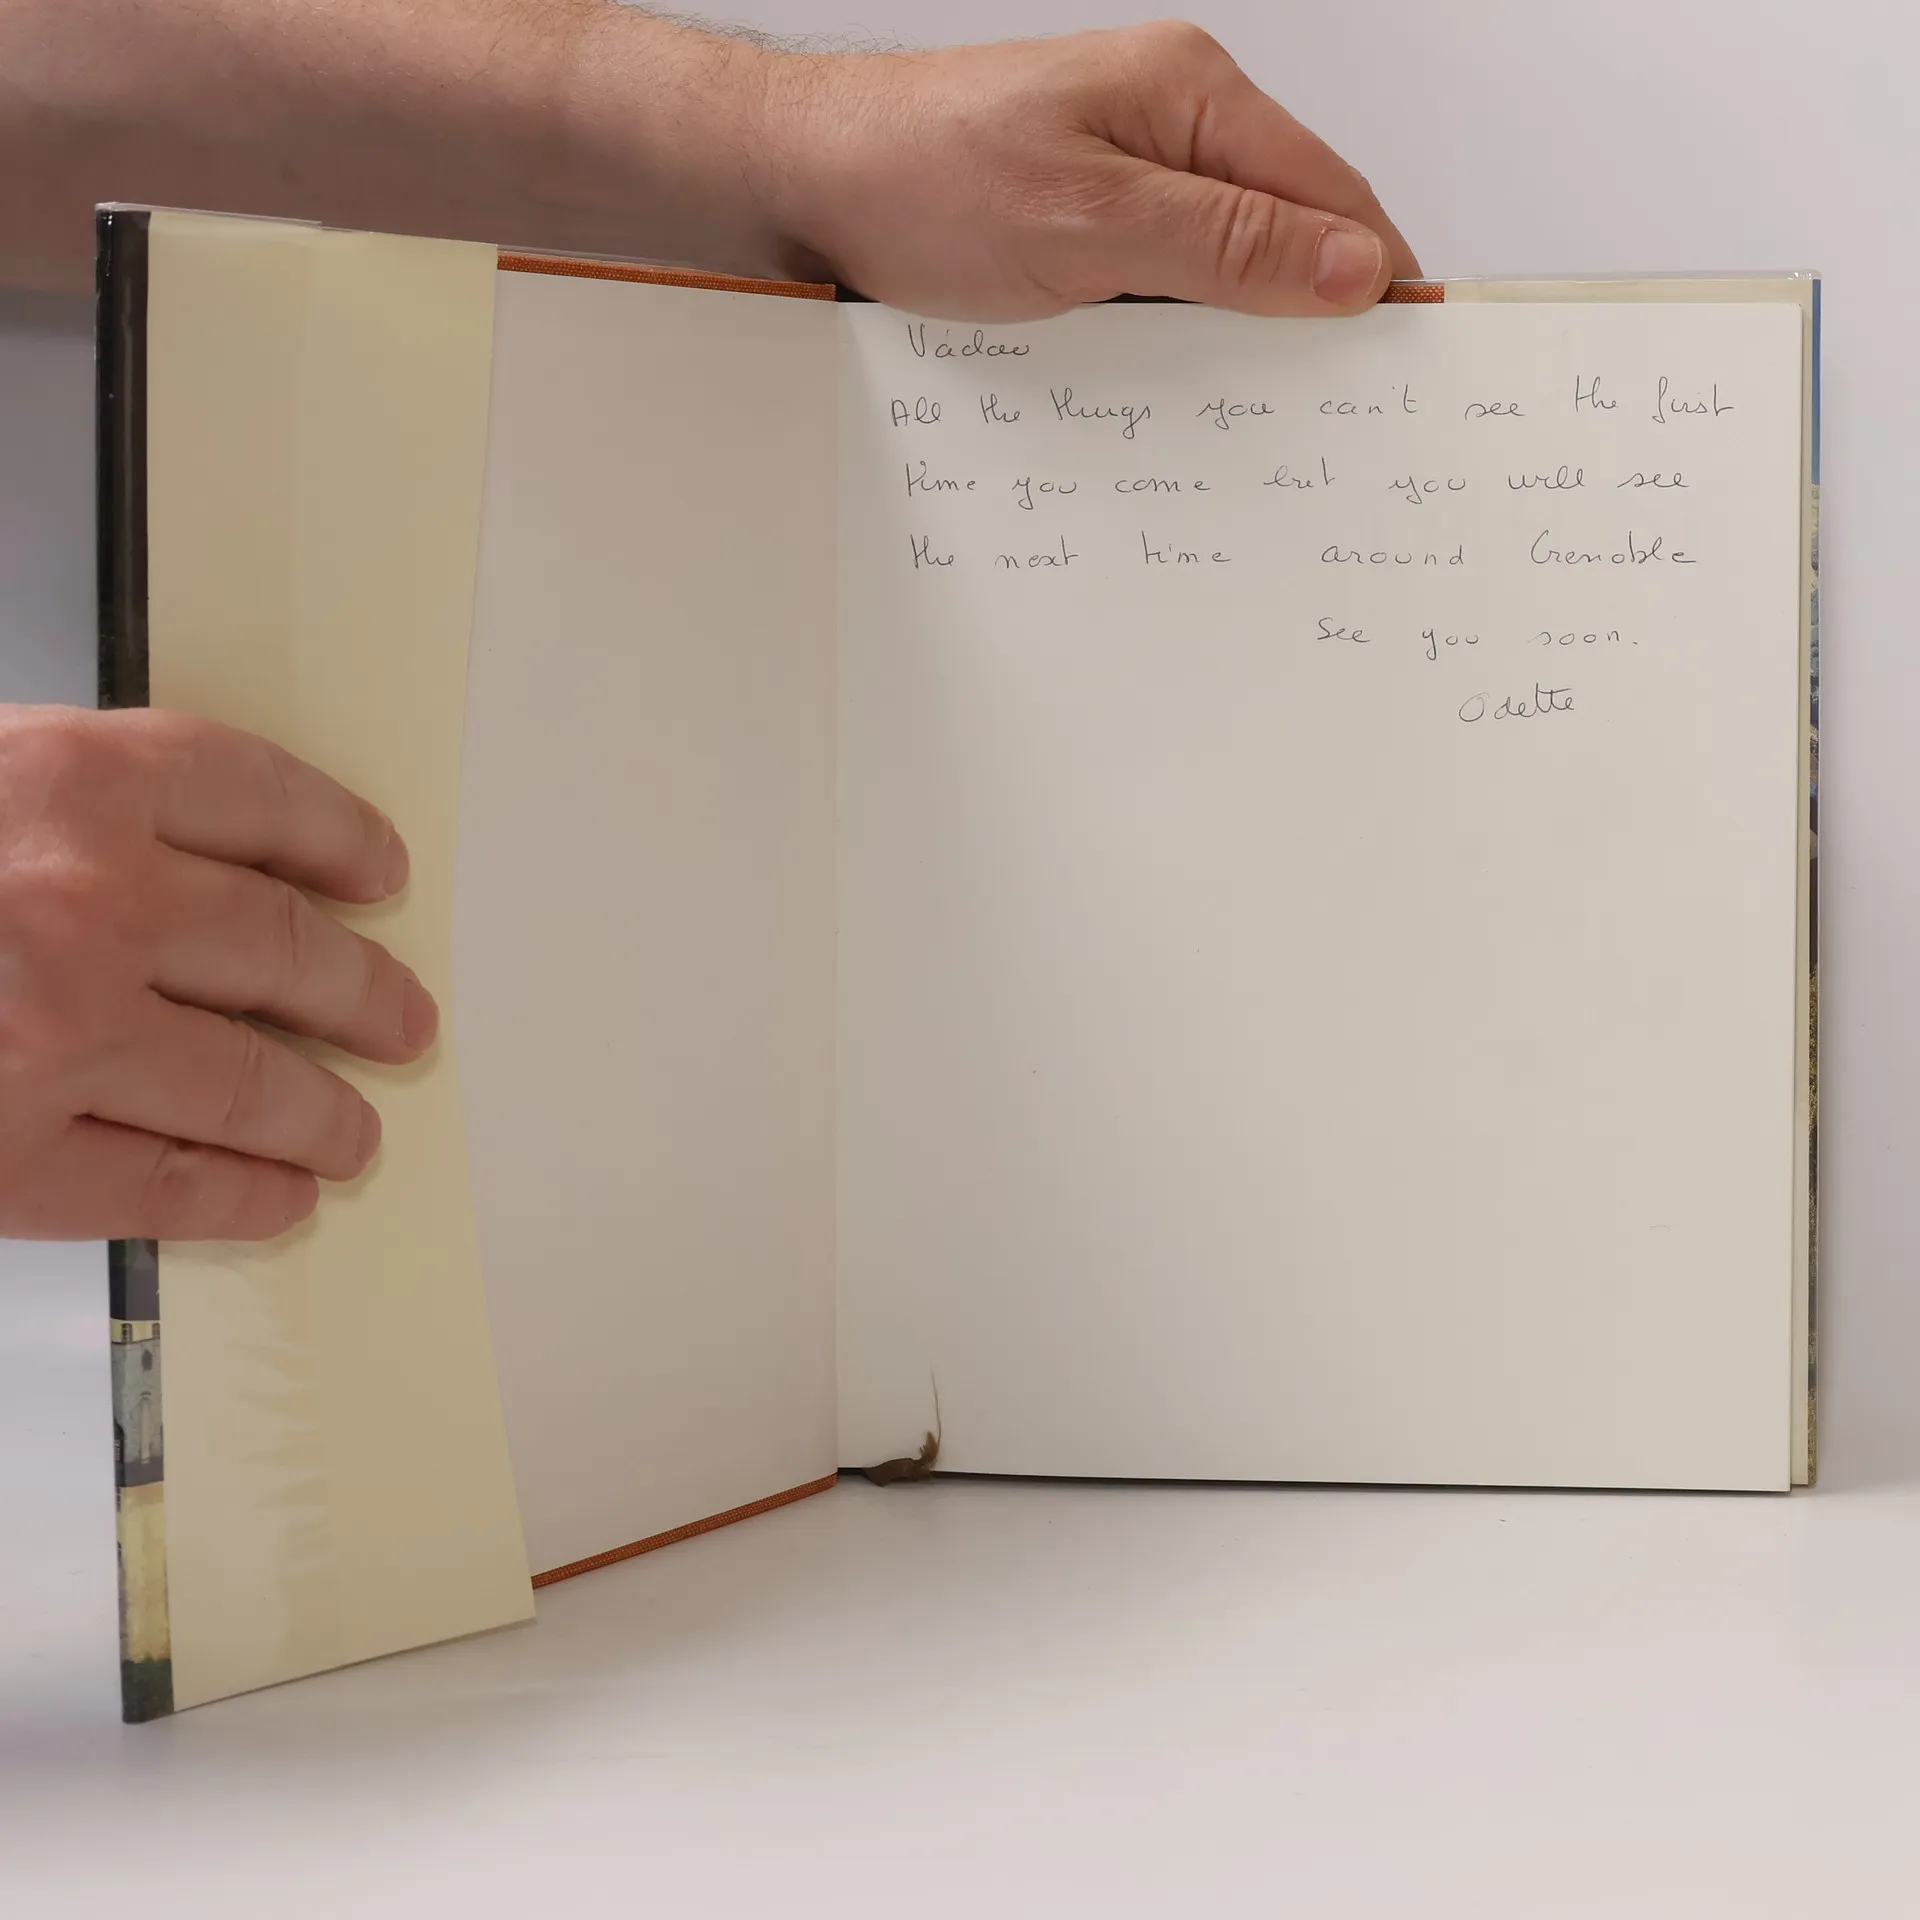 Václav
All the things you can't see the first
time you come but you will see
the next time around Grenoble
See you soon.
Odette